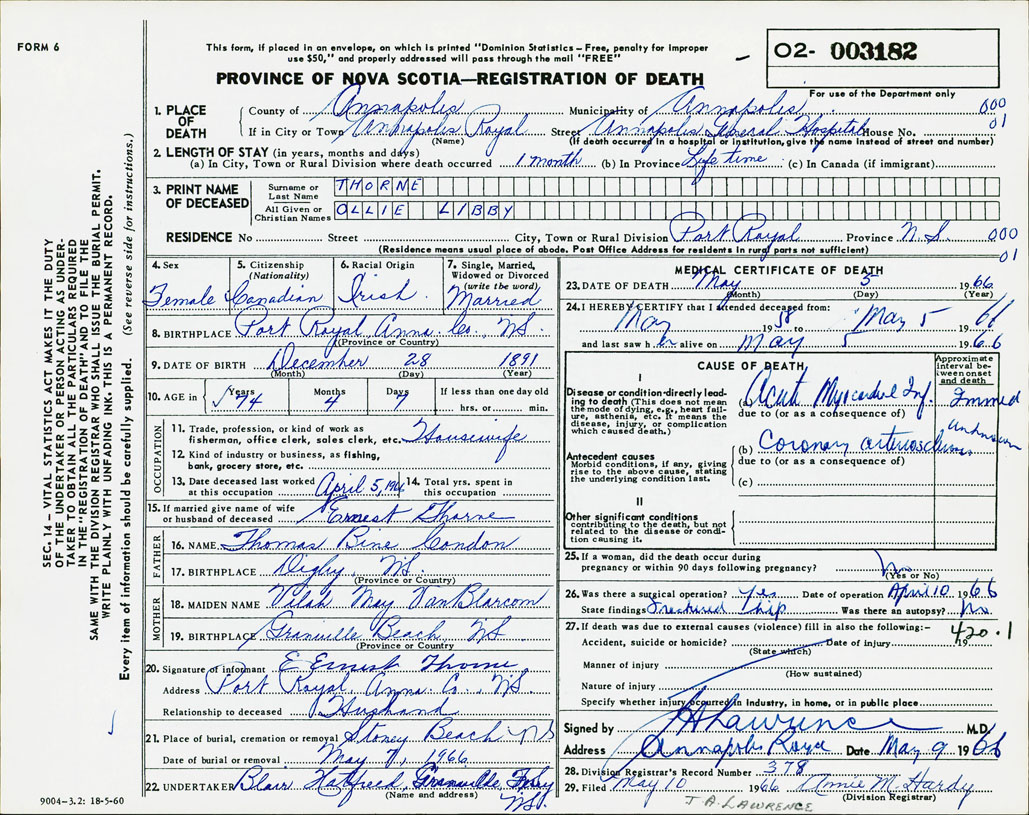 FORM 6
This form, if placed in an envelope, on which is printed "Dominion Statistics – Free, penalty for improper
use $50," and properly addressed will pass through the mail "FREE"
PROVINCE OF NOVA SCOTIA—REGISTRATION OF DEATH
02- 003182
For use of the Department only
1. PLACE OF DEATH
County of Annapolis Municipality of Annapolis 000
If in City or Town Annapolis Royal Street Annapolis General Hospital House No. 01
(Name) (If death occurred in a hospital or institution, give the name instead of street and number)
2. LENGTH OF STAY (in years, months and days)
(a) In City, Town or Rural Division where death occurred 1 month (b) In Province Life time (c) In Canada (if immigrant)
3. PRINT NAME OF DECEASED
Surname or Last Name THORNE
All Given or Christian Names OLLIE LIBBY
RESIDENCE No Street City, Town or Rural Division Port Royal Province N.S. 000
(Residence means usual place of abode. Post Office Address for residents in rural parts not sufficient) 01
4. Sex Female
5. Citizenship (Nationality) Canadian
6. Racial Origin Irish
7. Single, Married, Widowed or Divorced (write the word) Married
8. BIRTHPLACE Port Royal Anna. Co. NS.
(Province or Country)
9. DATE OF BIRTH December 28 1891
(Month) (Day) (Year)
10. AGE in Years 74 Months 4 Days 7 If less than one day old
hrs. or min.
OCCUPATION
11. Trade, profession, or kind of work as
fisherman, office clerk, sales clerk, etc. Housewife
12. Kind of industry or business, as fishing,
bank, grocery store, etc.
13. Date deceased last worked at this occupation April 5, 1966
14. Total yrs. spent in this occupation
15. If married give name of wife
or husband of deceased Ernest Thorne
FATHER
16. NAME Thomas Condon
17. BIRTHPLACE Digby, NS.
(Province or Country)
MOTHER
18. MAIDEN NAME May VanBlarcom
19. BIRTHPLACE Granville Beach, NS
(Province or Country)
20. Signature of informant E Ernest Thorne
Address Port Royal, Anna. Co., NS
Relationship to deceased Husband
21. Place of burial, cremation or removal Stoney Beach NS
Date of burial or removal May 7, 1966
22. UNDERTAKER Blair Hatfield, Granville Ferry
(Name and address) NS.
9004–3.2: 18-5-60
MEDICAL CERTIFICATE OF DEATH
23. DATE OF DEATH May 5 1966
(Month) (Day) (Year)
24. I HEREBY CERTIFY that I attended deceased from:
May 1958 to May 5 1966
and last saw her alive on May 5 1966
CAUSE OF DEATH
Approximate interval between onset and death
I
Disease or condition directly leading to death (This does not mean the mode of dying, e.g., heart failure, asthenia, etc. It means the disease, injury, or complication which caused death.)
(a) Acute Myocardial Inf. Immed
due to (or as a consequence of)
Antecedent causes
Morbid conditions, if any, giving rise to the above cause, stating the underlying condition last.
(b) Coronary arteriosclerosis unknown
due to (or as a consequence of)
(c)
II
Other significant conditions
contributing to the death, but not related to the disease or condition causing it.
25. If a woman, did the death occur during
pregnancy or within 90 days following pregnancy? No
(Yes or No)
26. Was there a surgical operation? Yes Date of operation April 10 1966
State findings Fractured Hip Was there an autopsy? No
27. If death was due to external causes (violence) fill in also the following:–
420.1
Accident, suicide or homicide? Date of injury 19
(State which)
Manner of injury
(How sustained)
Nature of injury
Specify whether injury occurred in industry, in home, or in public place
Signed by JA Lawrence M.D.
Address Annapolis Royal Date May 9 1966
28. Division Registrar's Record Number 378
29. Filed May 10 1966 Annie M. Hardy
(Division Registrar)
J. A. LAWRENCE
SEC. 14 – VITAL STATISTICS ACT MAKES IT THE DUTY
OF THE UNDERTAKER OR PERSON ACTING AS UNDER-
TAKER TO OBTAIN ALL THE PARTICULARS REQUIRED
IN THE "REGISTRATION OF DEATH" AND TO FILE THE
SAME WITH THE DIVISION REGISTRAR WHO SHALL ISSUE THE BURIAL PERMIT.
WRITE PLAINLY WITH UNFADING INK. THIS IS A PERMANENT RECORD.
Every item of information should be carefully supplied. (See reverse side for instructions.)